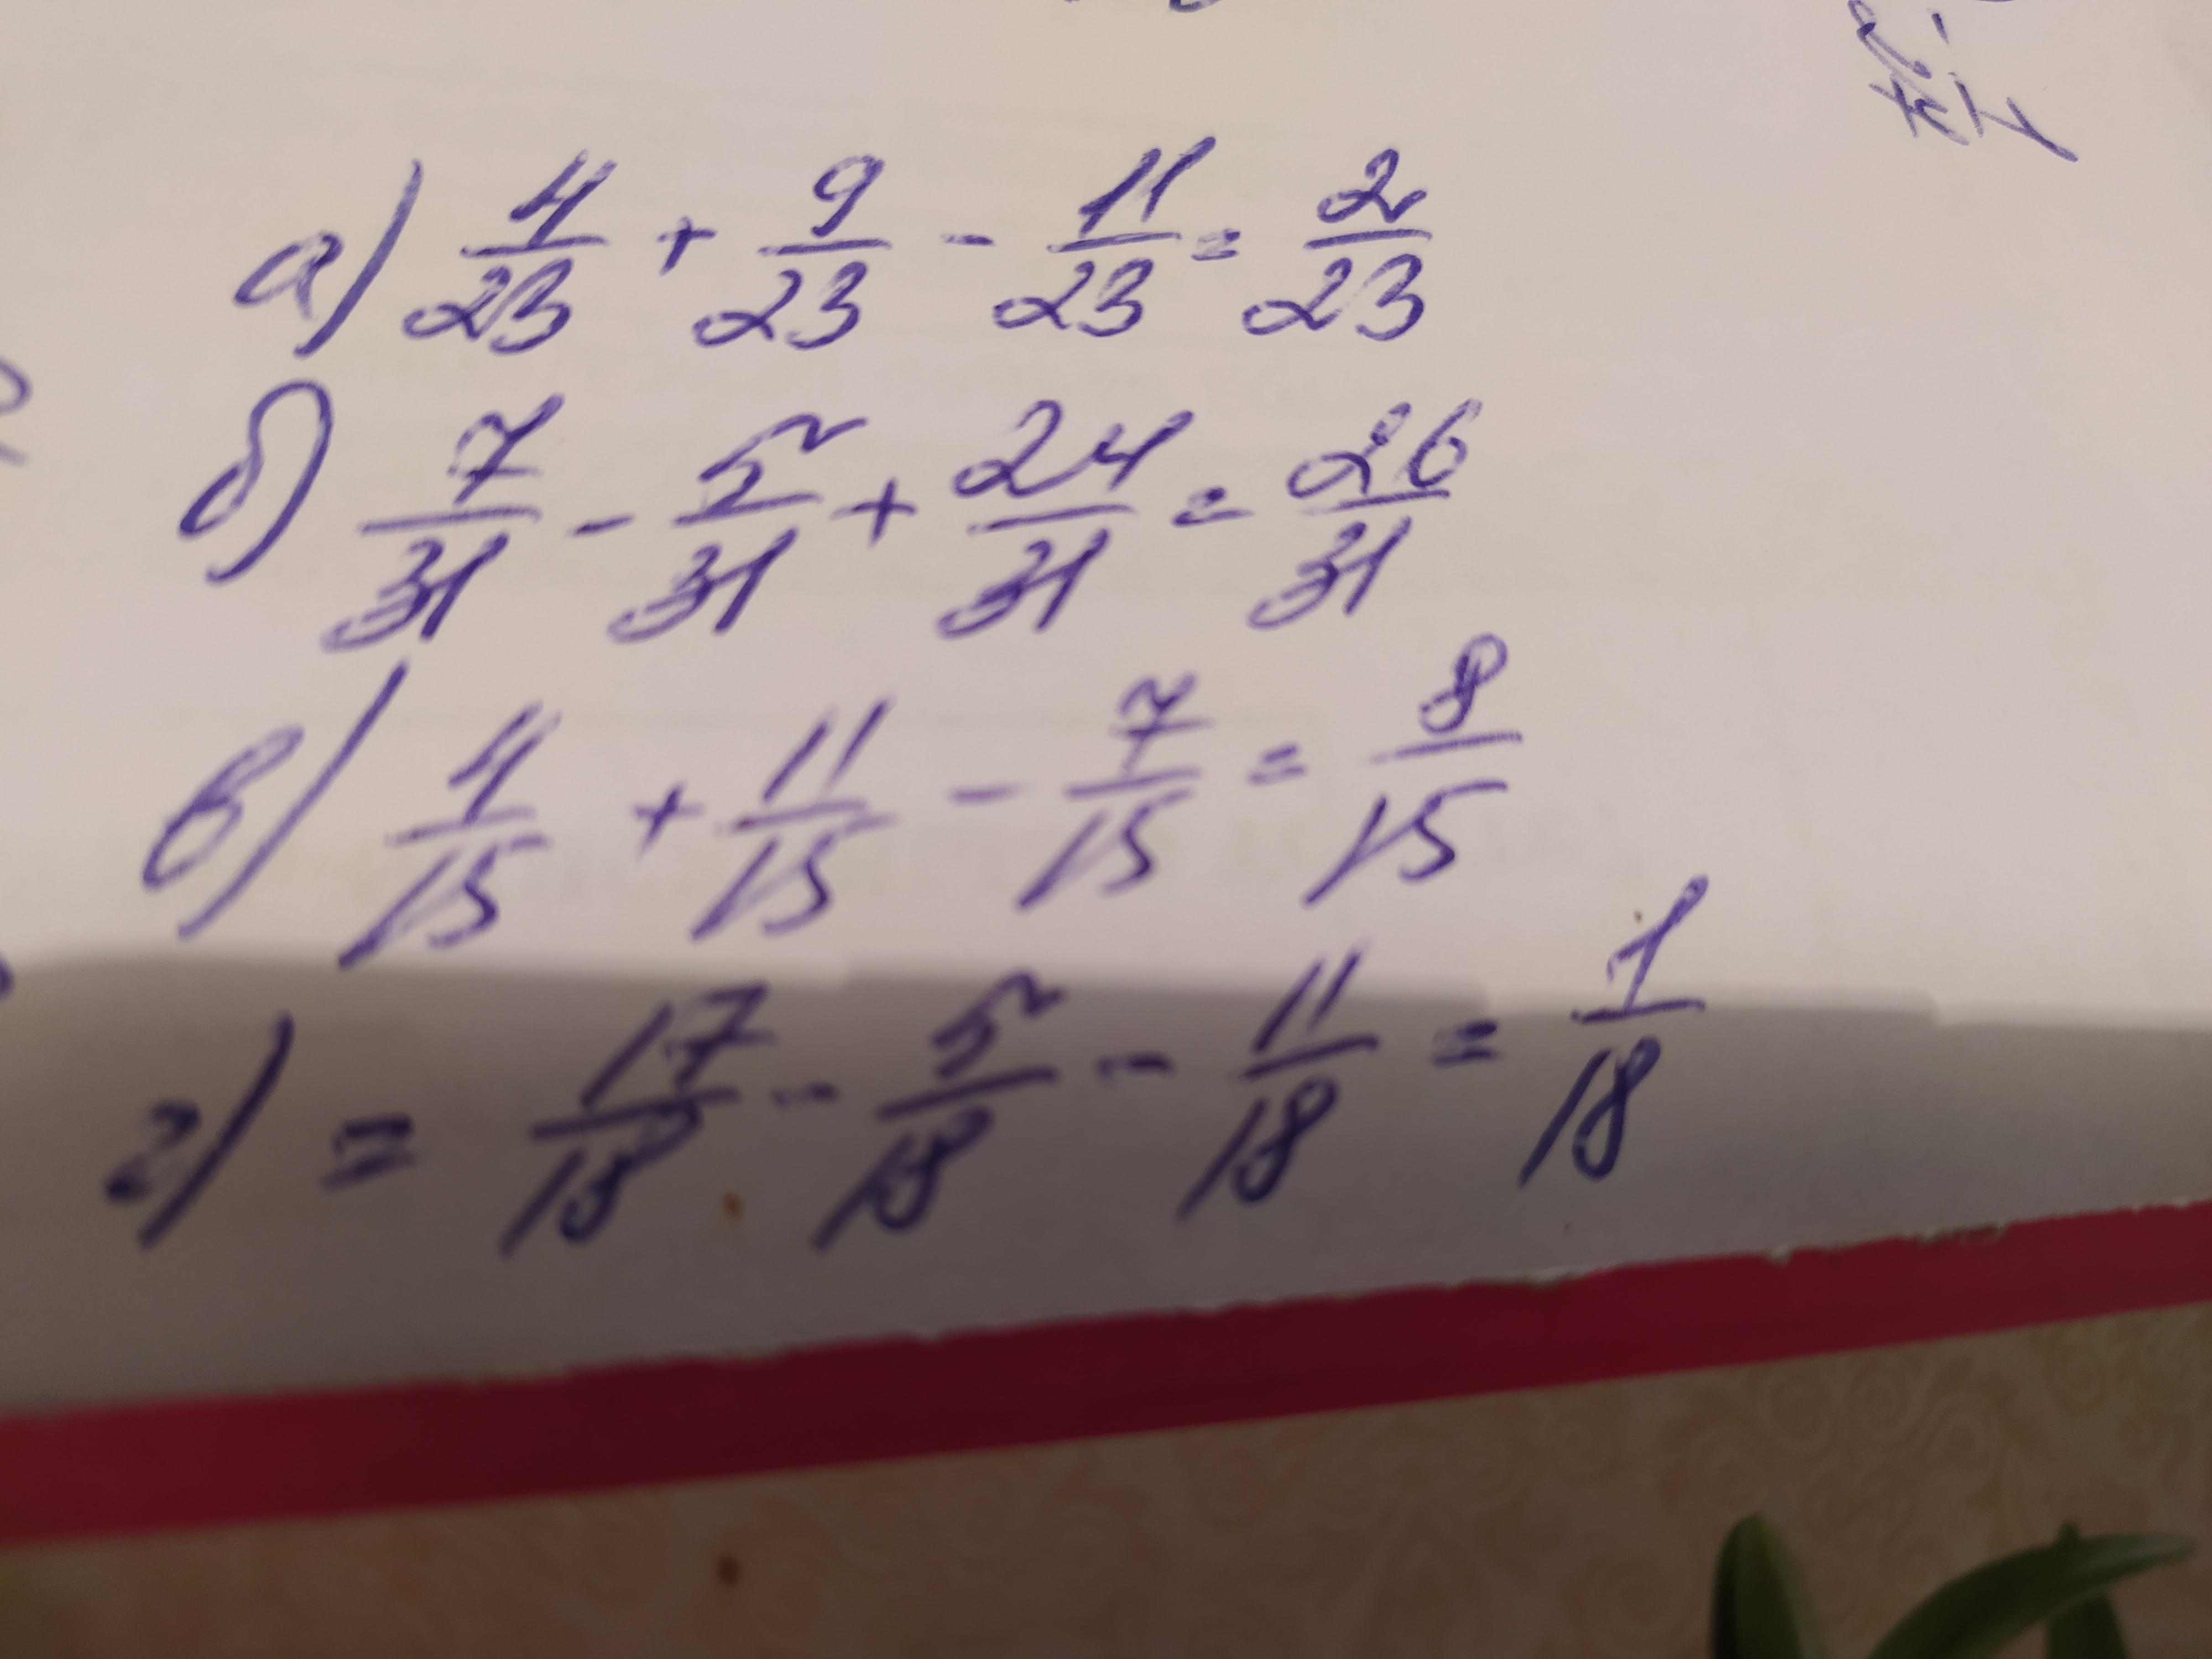 а) 4/23 + 9/23 - 11/23 = 2/23
б) 7/31 - 5/31 + 24/31 = 26/31
в) 4/15 + 11/15 - 7/15 = 8/15
г) = 17/18 - 5/18 - 11/18 = 1/18